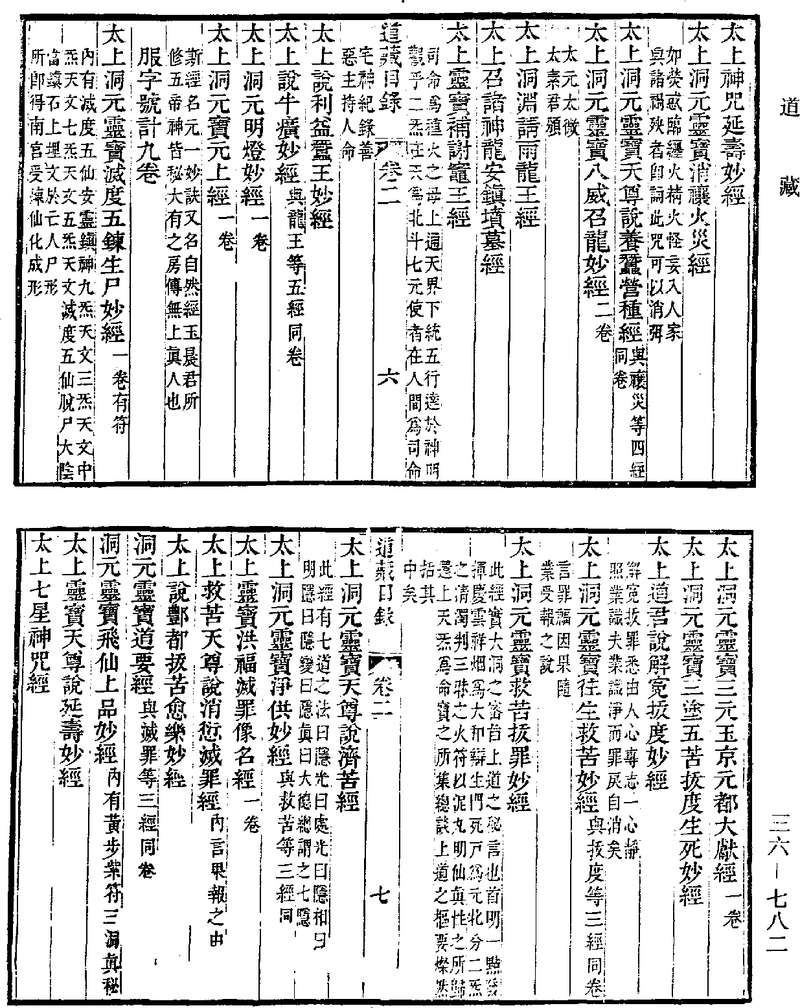 道藏
太上神咒延壽妙經
太上洞元靈寶消禳火災經
如熒惑臨纏火精火怪妄入人家
與諸禍殃者即誦此咒可以消弭
太上洞元靈寶天尊說養蠶營種經與禳災等四經同卷
太上洞元靈寶八威召龍妙經二卷
太元太微
太素君頒
太上洞淵請雨龍王經
太上召諸神龍安鎮墳墓經
太上靈寶補謝竈王經
司命爲種火之母上通天界下統五行達於神明
觀乎二炁在天爲北斗七元使者在人間爲司命
道藏目錄 卷二 六
宅神紀錄善
惡主持人命
太上說利益蠶王妙經
太上說牛癀妙經與龍王等五經同卷
太上洞元明燈妙經一卷
太上洞元寶元上經一卷
斯經名元一妙訣又名自然經玉晨君所
修五帝神皆秘大有之房傳無上眞人也
服字號計九卷
太上洞元靈寶滅度五鍊生尸妙經一卷有符
內有滅度五仙安靈鎮神九炁天文三炁天文中
炁天文七炁天文五炁天文滅度五仙脫尸大陰
當遠石上埋文於亡人尸形
所卽得南宮受鍊仙化成形
太上洞元靈寶三元玉京元都大獻經一卷
太上洞元靈寶三塗五苦拔度生死妙經
太上道君說解冤拔度妙經
解冤拔罪悉由人心專志一心靜
照業識夫業識淨而罪戾自消矣
太上洞元靈寶往生救苦妙經與拔度等三經同卷
言罪譴因果隨
業受報之說
太上洞元靈寶救苦拔罪妙經
此經寶大洞之密旨上道之秘言也首明一點
揮慶雲祥烟爲大和蘇生門死戶爲元牝分二炁
之淸濁判三昧之火符以泥丸明仙眞性之所歸
上天炁爲命寶之所集總談上道之樞要燦然
指其
中矣
道藏目錄 卷二 七
太上洞元靈寶天尊說濟苦經
此經有七道之法曰隱光曰處光曰隱和曰
明隱曰隱變曰隱眞曰大德總謂之七隱
太上洞元靈寶淨供妙經與救苦等三經同
太上靈寶洪福滅罪像名經一卷
太上救苦天尊說消愆滅罪經內言果報之由
太上說酆都拔苦愈樂妙經
洞元靈寶道要經與滅罪等三經同卷
洞元靈寶飛仙上品妙經內有黃步紫符三洞眞秘
太上靈寶天尊說延壽妙經
太上七星神咒經
三六—七八二